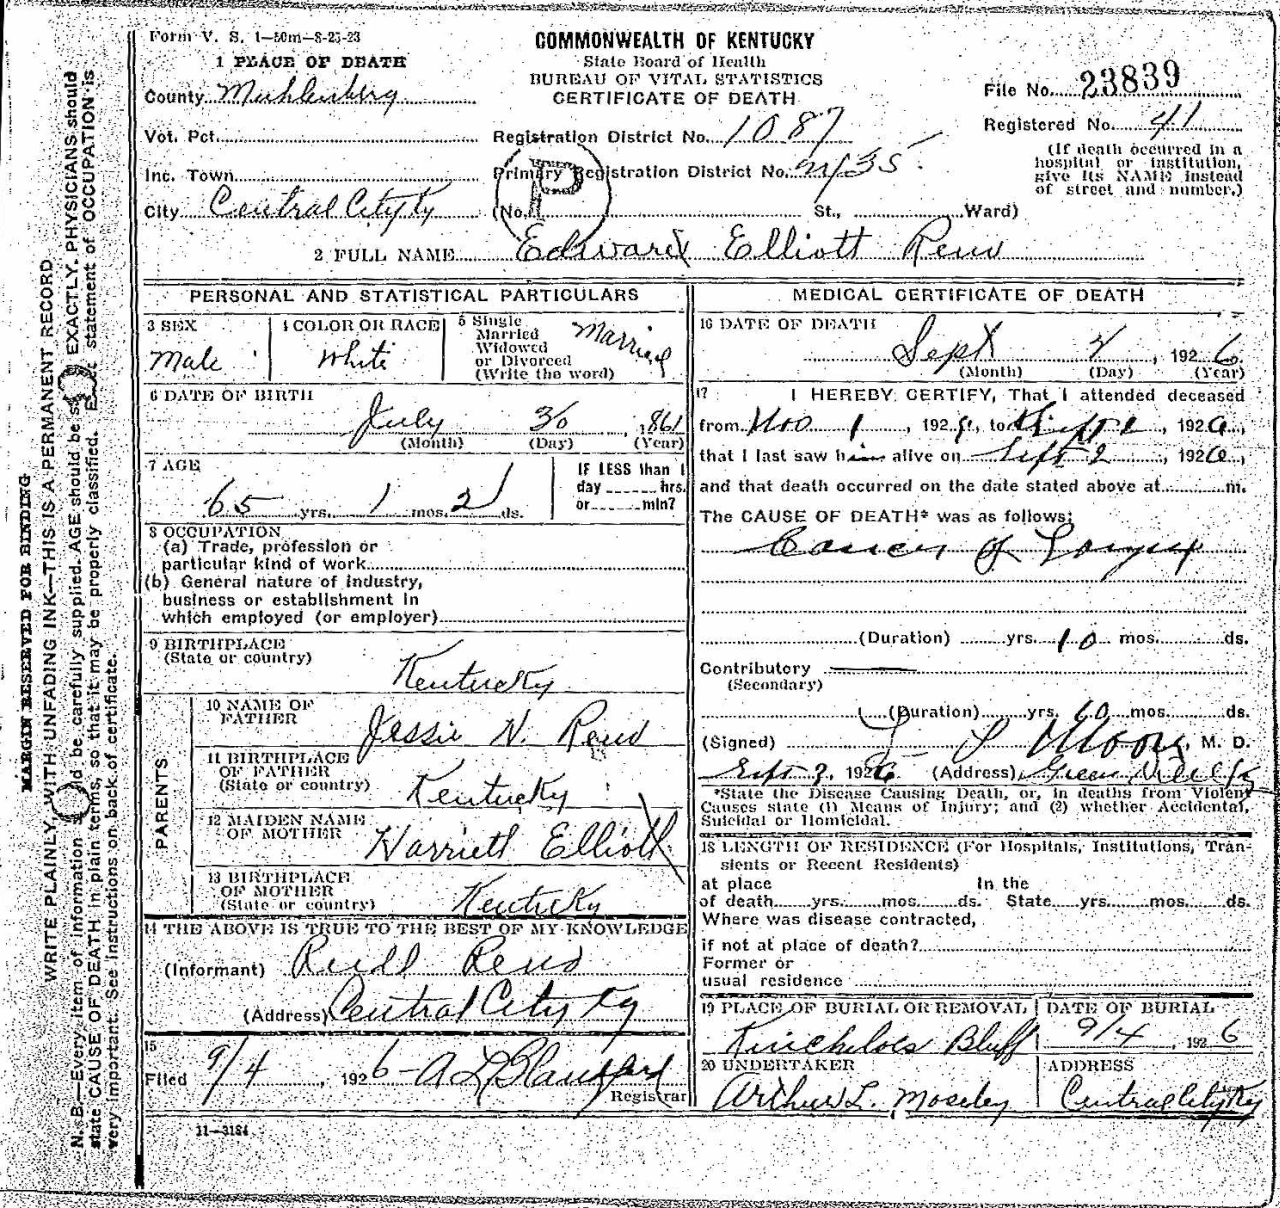 Form V. S. 1—50m—8-23-23
COMMONWEALTH OF KENTUCKY
State Board of Health
BUREAU OF VITAL STATISTICS
CERTIFICATE OF DEATH
File No. 23839
Registered No. 41
(If death occurred in a
hospital or institution,
give its NAME instead
of street and number.)
1 PLACE OF DEATH
County Muhlenberg
Vot. Pct.
Inc. Town
City Central City Ky
Registration District No. 1087
Primary Registration District No.
P
(No. St., Ward)
2 FULL NAME Edward Elliott Reno
PERSONAL AND STATISTICAL PARTICULARS
3 SEX
Male
4 COLOR OR RACE
White
5 Single
Married
Widowed
or Divorced
(Write the word)
Married
6 DATE OF BIRTH
July 30, 1861
(Month) (Day) (Year)
7 AGE
65 yrs. 1 mos. 2 ds.
IF LESS than 1
day hrs.
or min?
8 OCCUPATION
(a) Trade, profession or
particular kind of work
(b) General nature of industry,
business or establishment in
which employed (or employer)
9 BIRTHPLACE
(State or country)
Kentucky
PARENTS
10 NAME OF
FATHER
Jessie N. Reno
11 BIRTHPLACE
OF FATHER
(State or country)
Kentucky
12 MAIDEN NAME
OF MOTHER
Harriett Elliott
13 BIRTHPLACE
OF MOTHER
(State or country)
Kentucky
14 THE ABOVE IS TRUE TO THE BEST OF MY KNOWLEDGE
(Informant) Reno
(Address) Central City Ky
15
Filed 9/4, 1926 A L Blandford
Registrar
11—3184
MEDICAL CERTIFICATE OF DEATH
16 DATE OF DEATH
Sept, 1926
(Month) (Day) (Year)
17 I HEREBY CERTIFY, That I attended deceased
from Nov 1, 192, to Sept 2, 1926,
that I last saw him alive on Sept 2, 1926,
and that death occurred on the date stated above at m.
The CAUSE OF DEATH* was as follows:
Cancer of Larynx
(Duration) yrs. 10 mos. ds.
Contributory
(Secondary)
(Duration) yrs. mos. ds.
(Signed) Moore, M. D.
Sept 3, 1926 (Address) Greenville Ky
*State the Disease Causing Death, or, in deaths from Violent
Causes state (1) Means of Injury; and (2) whether Accidental,
Suicidal or Homicidal.
18 LENGTH OF RESIDENCE (For Hospitals, Institutions, Tran-
sients or Recent Residents)
at place In the
of death yrs. mos. ds. State yrs. mos. ds.
Where was disease contracted,
if not at place of death?
Former or
usual residence
19 PLACE OF BURIAL OR REMOVAL
Kincheloes Bluff
DATE OF BURIAL
9/4, 1926
20 UNDERTAKER
Arthur L. Moseley
ADDRESS
Central City Ky
MARGIN RESERVED FOR BINDING
WRITE PLAINLY, WITH UNFADING INK—THIS IS A PERMANENT RECORD
N. B.—Every item of information should be carefully supplied. AGE should be stated EXACTLY. PHYSICIANS should
state CAUSE OF DEATH in plain terms, so that it may be properly classified. Exact statement of OCCUPATION is
very important. See instructions on back of certificate.